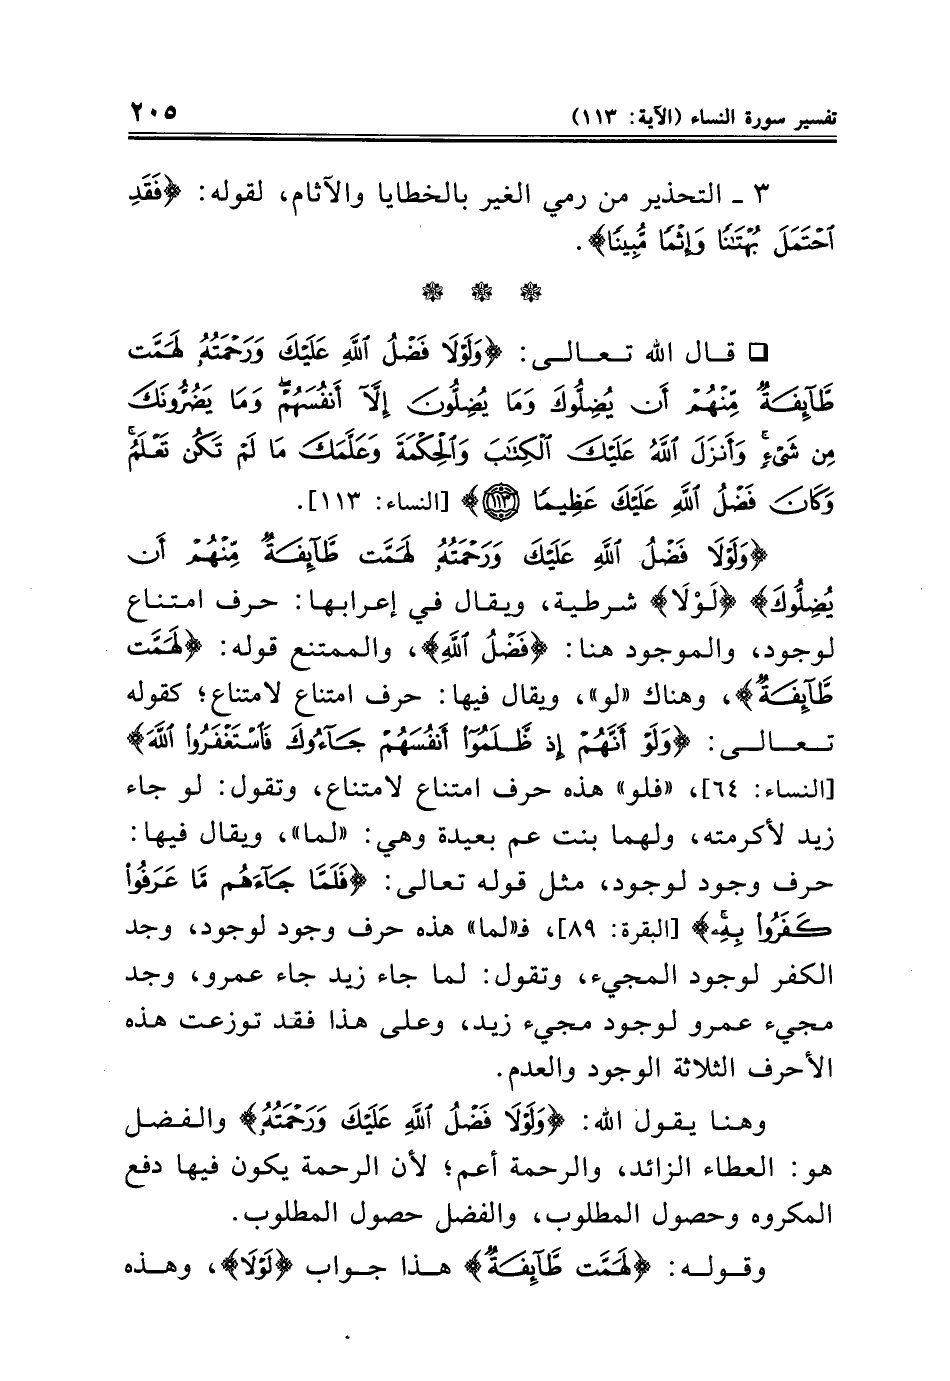 تفسير سورة النساء (الآية: ١١٣) ٢٠٥
٣ ـ التحذير من رمي الغير بالخطايا والآثام، لقوله: ﴿فَقَدِ
ٱحْتَمَلَ بُهْتَٰنًا وَإِثْمًا مُّبِينًا﴾.
❁ ❁ ❁
□ قال الله تعالى: ﴿وَلَوْلَا فَضْلُ ٱللَّهِ عَلَيْكَ وَرَحْمَتُهُۥ لَهَمَّت
طَّآئِفَةٌ مِّنْهُمْ أَن يُضِلُّوكَ وَمَا يُضِلُّونَ إِلَّآ أَنفُسَهُمْ ۖ وَمَا يَضُرُّونَكَ
مِن شَىْءٍ ۚ وَأَنزَلَ ٱللَّهُ عَلَيْكَ ٱلْكِتَٰبَ وَٱلْحِكْمَةَ وَعَلَّمَكَ مَا لَمْ تَكُن تَعْلَمُ ۚ
وَكَانَ فَضْلُ ٱللَّهِ عَلَيْكَ عَظِيمًا ١١٣﴾ [النساء: ١١٣].
﴿وَلَوْلَا فَضْلُ ٱللَّهِ عَلَيْكَ وَرَحْمَتُهُۥ لَهَمَّت طَّآئِفَةٌ مِّنْهُمْ أَن
يُضِلُّوكَ﴾ ﴿لَوْلَا﴾ شرطية، ويقال في إعرابها: حرف امتناع
لوجود، والموجود هنا: ﴿فَضْلُ ٱللَّهِ﴾، والممتنع قوله: ﴿لَهَمَّت
طَّآئِفَةٌ﴾، وهناك «لو»، ويقال فيها: حرف امتناع لامتناع؛ كقوله
تعالى: ﴿وَلَوْ أَنَّهُمْ إِذ ظَّلَمُوٓا۟ أَنفُسَهُمْ جَآءُوكَ فَٱسْتَغْفَرُوا۟ ٱللَّهَ﴾
[النساء: ٦٤]، «فلو» هذه حرف امتناع لامتناع، وتقول: لو جاء
زيد لأكرمته، ولهما بنت عم بعيدة وهي: «لما»، ويقال فيها:
حرف وجود لوجود، مثل قوله تعالى: ﴿فَلَمَّا جَآءَهُم مَّا عَرَفُوا۟
كَفَرُوا۟ بِهِۦ ۚ﴾ [البقرة: ٨٩]، فـ«لما» هذه حرف وجود لوجود، وجد
الكفر لوجود المجيء، وتقول: لما جاء زيد جاء عمرو، وجد
مجيء عمرو لوجود مجيء زيد، وعلى هذا فقد توزعت هذه
الأحرف الثلاثة الوجود والعدم.
وهنا يقول الله: ﴿وَلَوْلَا فَضْلُ ٱللَّهِ عَلَيْكَ وَرَحْمَتُهُۥ﴾ والفضل
هو: العطاء الزائد، والرحمة أعم؛ لأن الرحمة يكون فيها دفع
المكروه وحصول المطلوب، والفضل حصول المطلوب.
وقوله: ﴿لَهَمَّت طَّآئِفَةٌ﴾ هذا جواب ﴿لَوْلَا﴾، وهذه